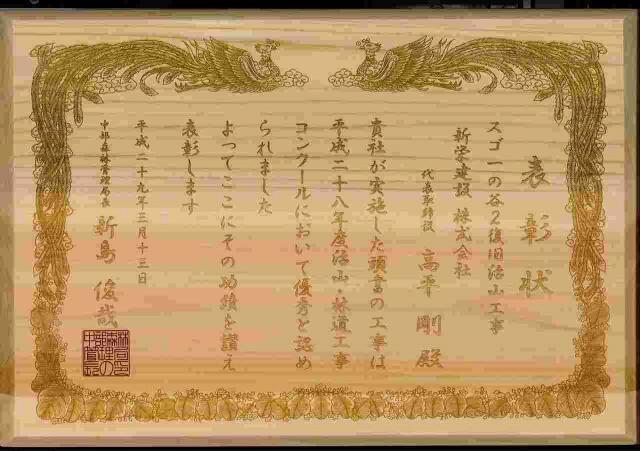 表彰状
スゴ一の谷2復旧治山工事
新栄建設 株式会社
代表取締役 高平 剛 殿
貴社が実施した頭書の工事は
平成二十八年度治山・林道工事
コンクールにおいて優秀と認め
られました
よってここにその功績を讃え
表彰します
平成二十九年三月十三日
中部森林管理局長 新島 俊哉